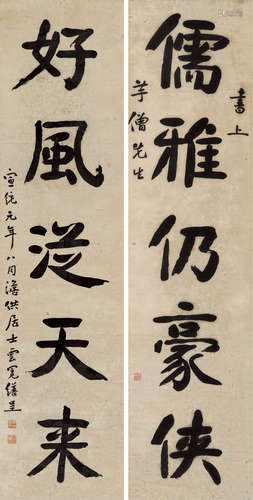 書上
儒雅仍豪俠
芋僧先生
好風從天来
宣統元年八月澹供居士雲冕繕呈